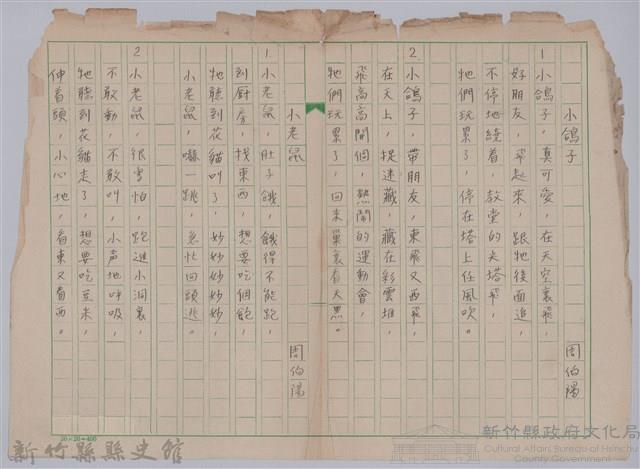 小鴿子
周伯陽
1 小鴿子，真可愛，在天空裏飛，
好朋友，飛起來，跟牠後面追，
不停地繞着，教堂的尖塔飛，
牠們玩累了，停在塔上任風吹。
2 小鴿子，帶朋友，東飛又西飛，
在天上，捉迷藏，藏在彩雲堆，
飛高高開個，熱鬧的運動會，
牠們玩累了，回來巢裏看天黑。
小老鼠
周伯陽
1. 小老鼠，肚子餓，餓得不能跑，
到厨房，找東西，想要吃個飽，
牠聽到花貓叫了，妙妙妙妙妙，
小老鼠，嚇一跳，急忙回頭逃。
2 小老鼠，很害怕，跑進小洞裏，
不敢動，不敢叫，小声地呼吸，
牠聽到花貓走了，想要吃豆米，
伸着頭，小心地，看東又看西。
20×20=400
新竹縣縣史館
新竹縣政府文化局
Cultural Affairs Bureau of Hsinchu
County Government